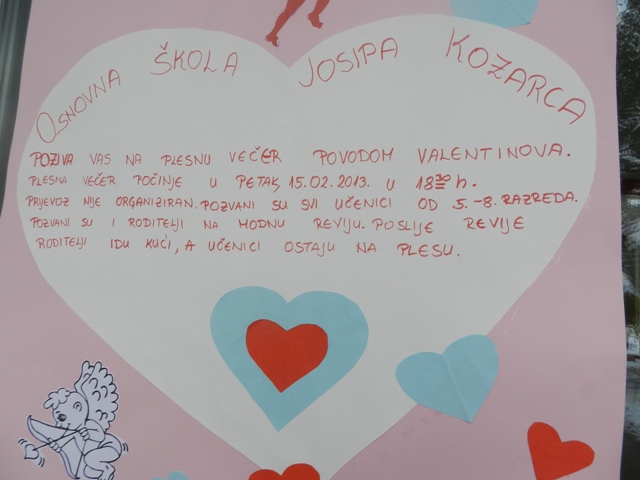 OSNOVNA ŠKOLA JOSIPA KOZARCA
POZIVA VAS NA PLESNU VEČER POVODOM VALENTINOVA.
PLESNA VEČER POČINJE U PETAK, 15.02.2013. U 18³⁰ h.
PRIJEVOZ NIJE ORGANIZIRAN. POZVANI SU SVI UČENICI OD 5.-8. RAZREDA.
POZVANI SU I RODITELJI NA MODNU REVIJU. POSLIJE REVIJE
RODITELJI IDU KUĆI, A UČENICI OSTAJU NA PLESU.